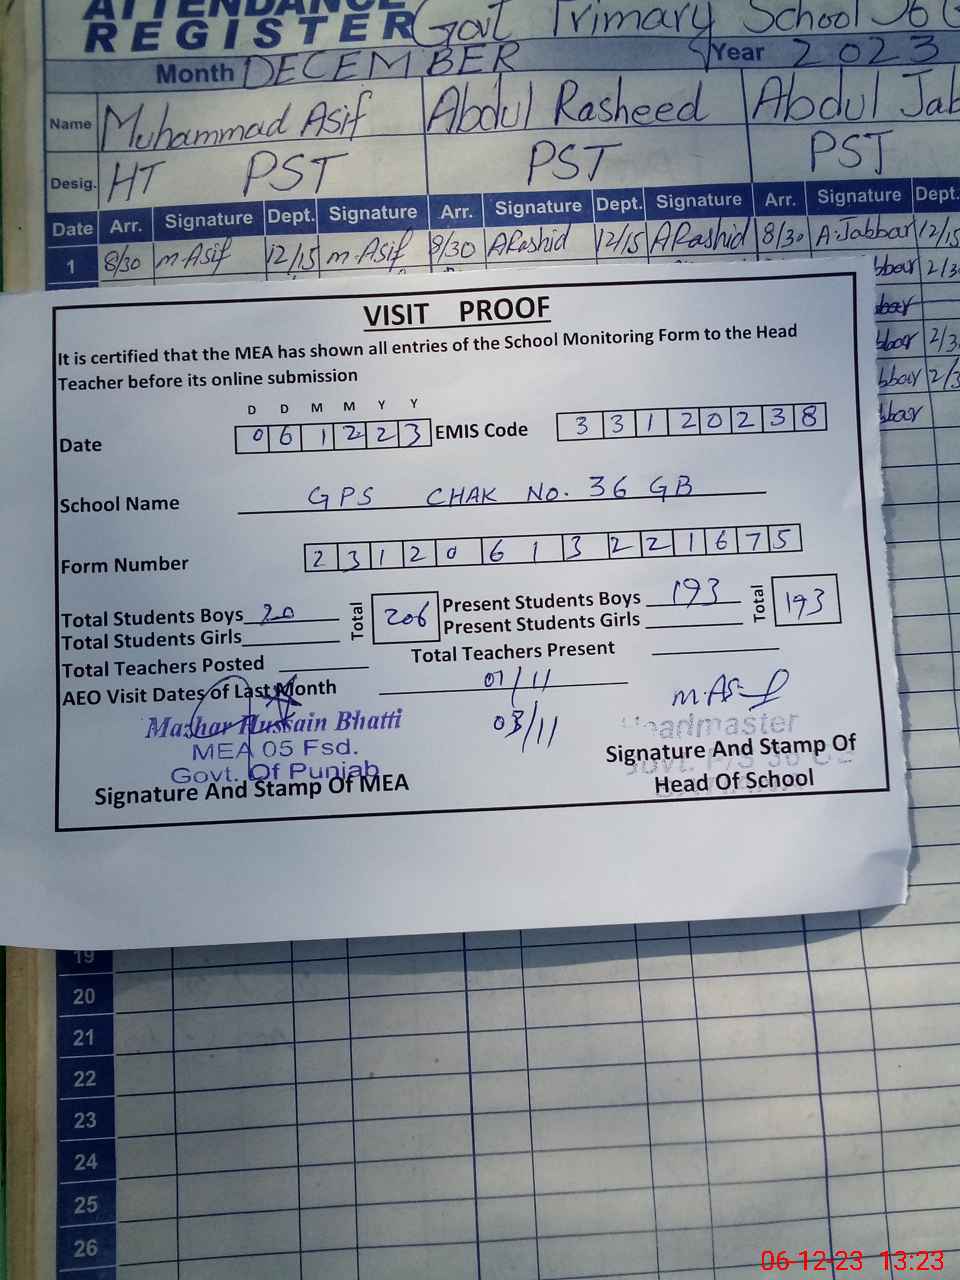 ATTENDANCE
REGISTER Govt Primary School 36 G
Month DECEMBER Year 2023
Name Muhammad Asif Abdul Rasheed Abdul Jab
Desig. HT PST PST PST
Date Arr. Signature Dept. Signature Arr. Signature Dept. Signature Arr. Signature Dept.
1 8/30 m.Asif 12/15 m.Asif 8/30 ARashid 12/15 ARashid 8/30 A.Jabbar 12/15
bbar 2/3
bbar
bbar 2/3
bbar 2/3
bbar
VISIT PROOF
It is certified that the MEA has shown all entries of the School Monitoring Form to the Head
Teacher before its online submission
D D M M Y Y
Date 0 6 1 2 2 3 EMIS Code 3 3 1 2 0 2 3 8
School Name GPS CHAK No. 36 GB
Form Number 2 3 1 2 0 6 1 3 2 2 1 6 7 5
Total Students Boys 20 Total 206 Present Students Boys 193 Total 193
Total Students Girls Present Students Girls
Total Teachers Posted Total Teachers Present
AEO Visit Dates of Last Month 01/11
03/11
m.Asif
Mazhar Hussain Bhatti
MEA 05 Fsd.
Govt. Of Punjab
Signature And Stamp Of MEA
Headmaster
Signature And Stamp Of
Head Of School
19
20
21
22
23
24
25
26
06-12-23 13:23